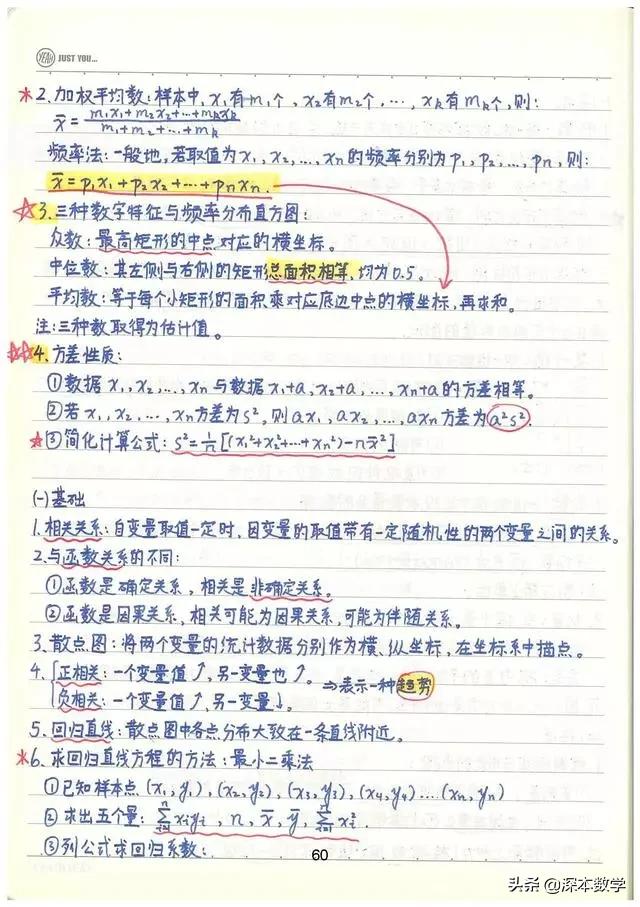 YEAH JUST YOU...
*2. 加权平均数:样本中,x₁有m₁个,x₂有m₂个,…,xₖ有mₖ个,则:
x̄=(m₁x₁+m₂x₂+…+mₖxₖ)/(m₁+m₂+…+mₖ)
频率法:一般地,若取值为x₁,x₂,…,xₙ的频率分别为p₁,p₂,…,pₙ,则:
x̄=p₁x₁+p₂x₂+…+pₙxₙ.
☆3.三种数字特征与频率分布直方图:
众数:最高矩形的中点对应的横坐标。
中位数:其左侧与右侧的矩形总面积相等,均为0.5。
平均数:等于每个小矩形的面积乘对应底边中点的横坐标,再求和。
注:三种数取得为估计值。
☆☆4.方差性质:
①数据x₁,x₂,…,xₙ与数据x₁+a,x₂+a,…,xₙ+a的方差相等。
②若x₁,x₂,…,xₙ方差为s²,则ax₁,ax₂,…,axₙ方差为a²s².
☆③简化计算公式:s²=1/n[(x₁²+x₂²+…+xₙ²)-nx̄²]
(一)基础
1.相关关系:自变量取值一定时,因变量的取值带有一定随机性的两个变量之间的关系。
2.与函数关系的不同:
①函数是确定关系,相关是非确定关系。
②函数是因果关系,相关可能为因果关系,可能为伴随关系。
3.散点图:将两个变量的统计数据分别作为横、纵坐标,在坐标系中描点。
4.{正相关:一个变量值↗,另一变量也↗。⇒表示一种趋势
负相关:一个变量值↗,另一变量↓。
5.回归直线:散点图中各点分布大致在一条直线附近。
*6.求回归直线方程的方法:最小二乘法
①已知样本点(x₁,y₁),(x₂,y₂),(x₃,y₃),(x₄,y₄)…(xₙ,yₙ)
②求出五个量:∑ⁿᵢ₌₁xᵢyᵢ,n,x̄,ȳ,∑ⁿᵢ₌₁xᵢ².
③列公式求回归系数:
60
头条@深本数学